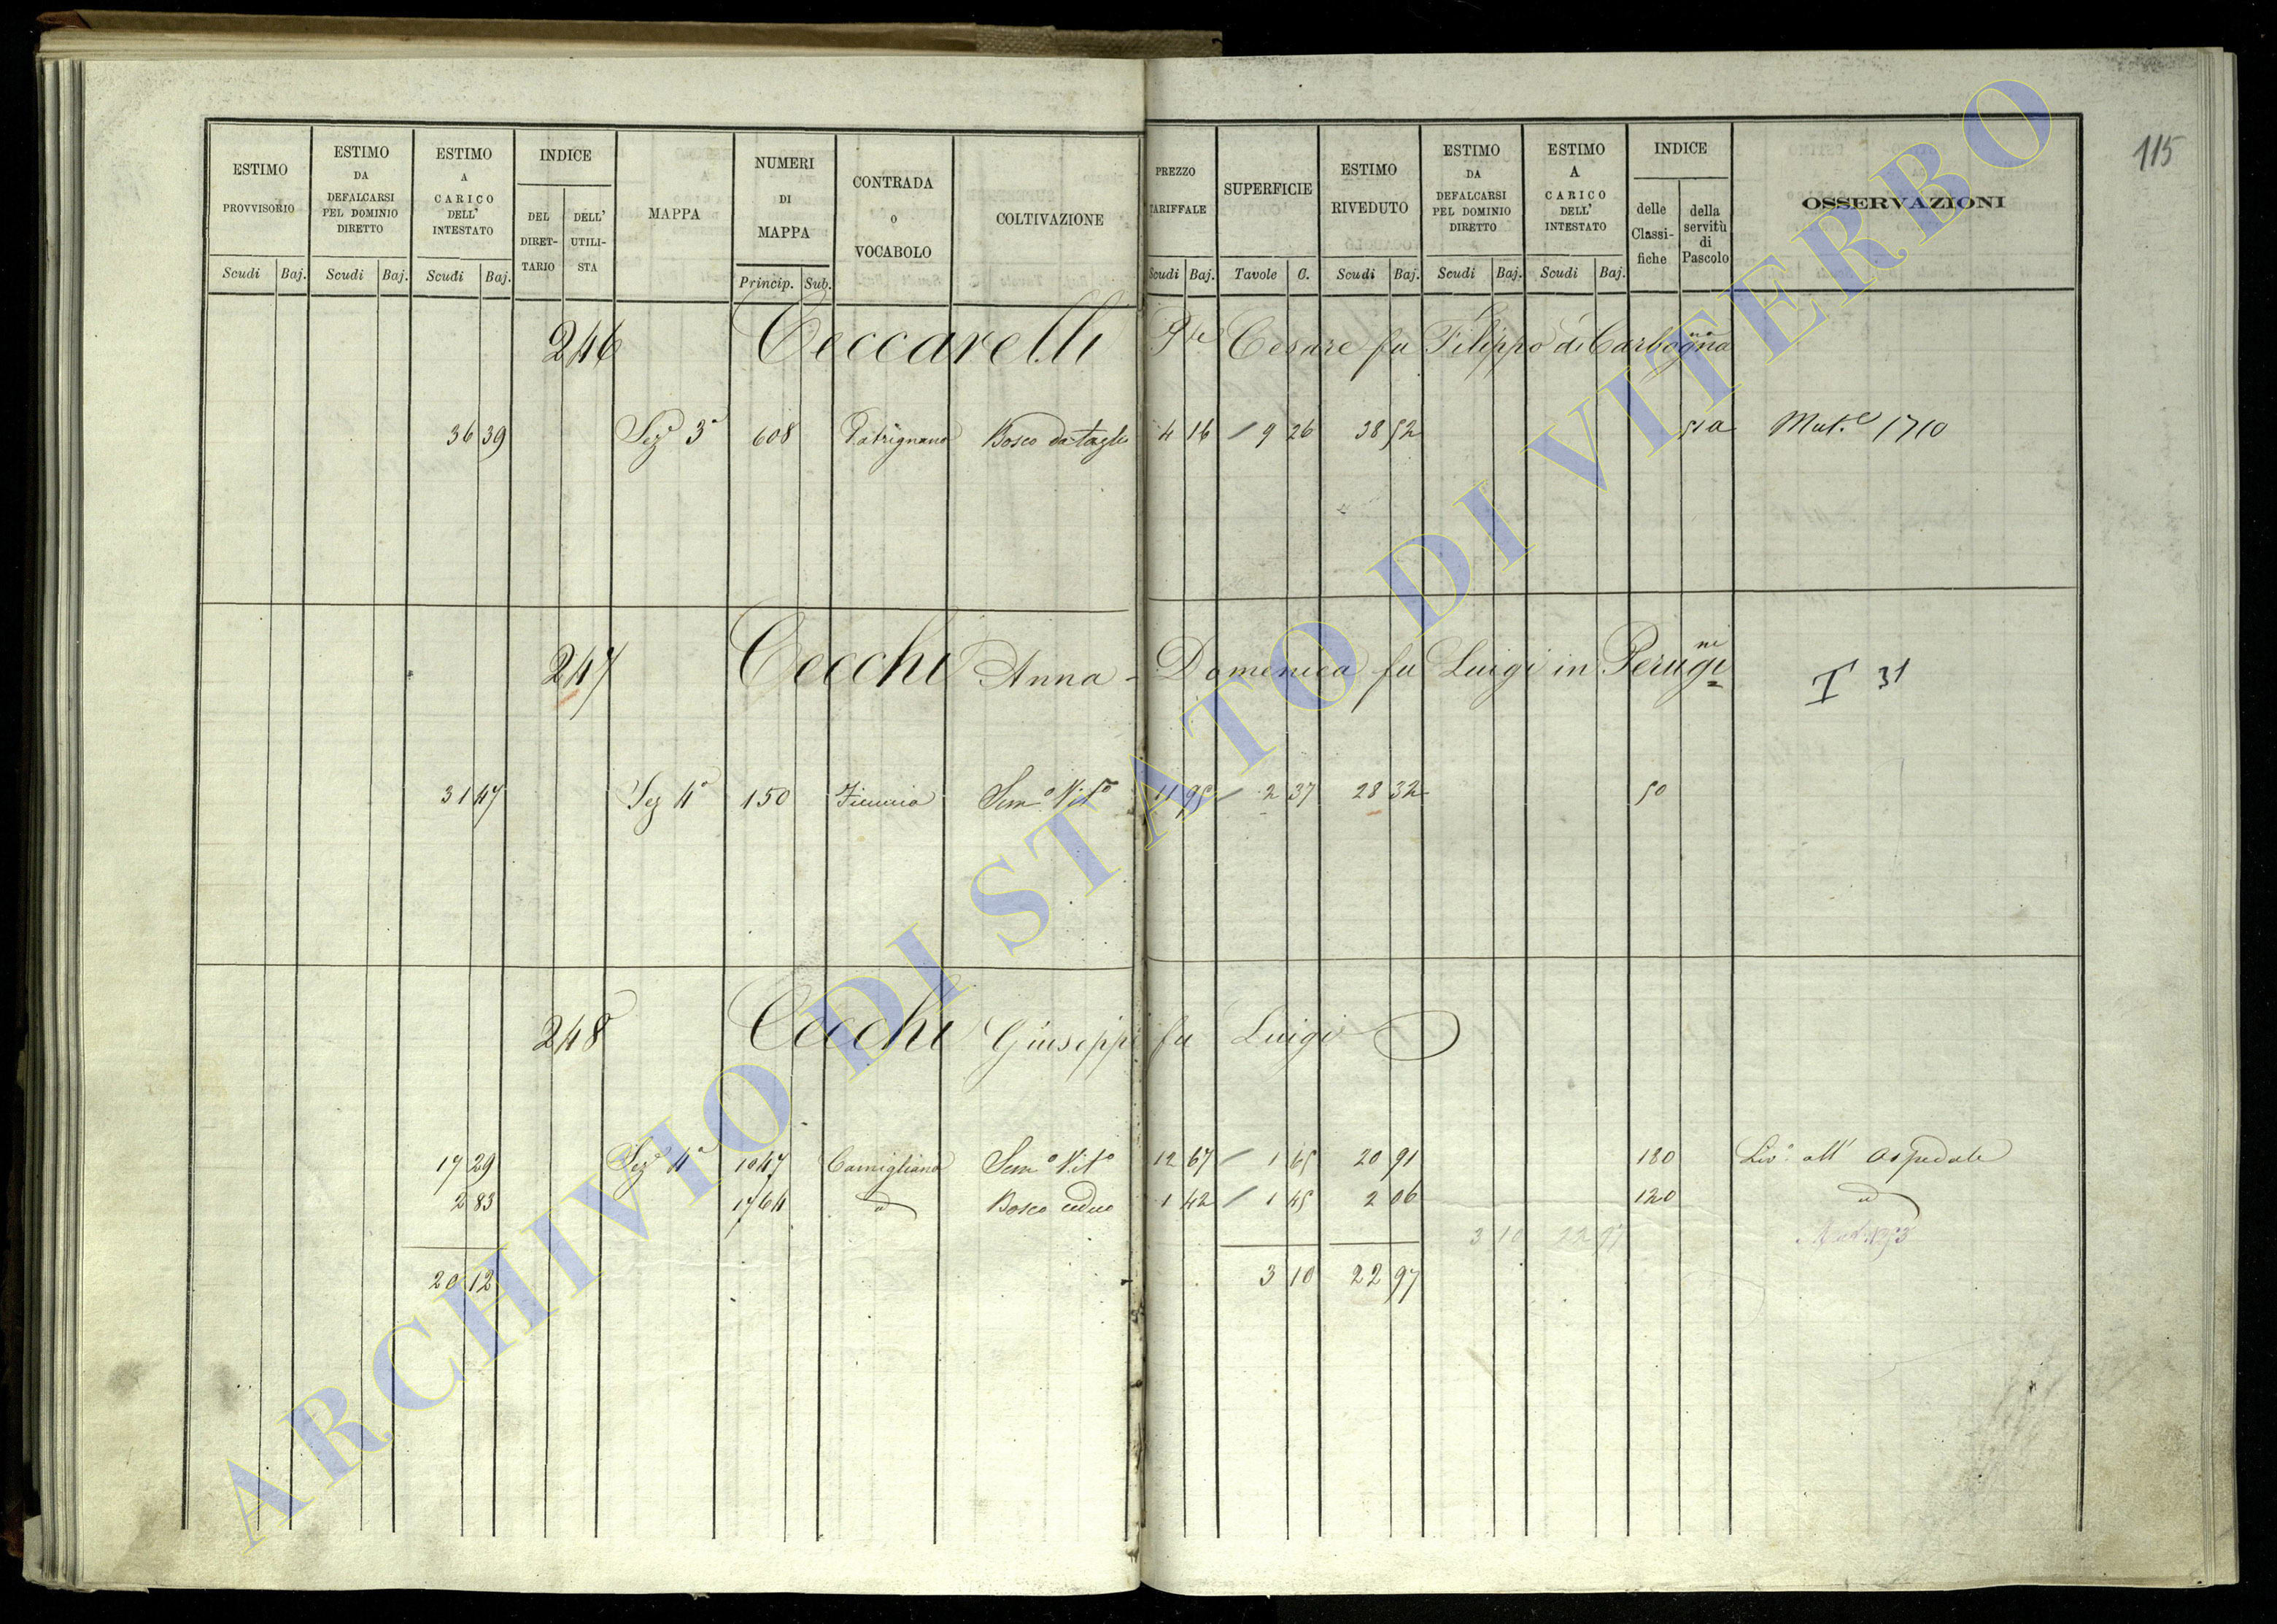 115
ESTIMO PROVVISORIO Scudi Baj. ESTIMO DA DEFALCARSI PEL DOMINIO DIRETTO Scudi Baj. ESTIMO A CARICO DELL' INTESTATO Scudi Baj. INDICE DEL DIRET-TARIO DELL' UTILI-STA MAPPA NUMERI DI MAPPA Princip. Sub. CONTRADA O VOCABOLO COLTIVAZIONE PREZZO TARIFFALE Scudi Baj. SUPERFICIE Tavole C. ESTIMO RIVEDUTO Scudi Baj. ESTIMO DA DEFALCARSI PEL DOMINIO DIRETTO Scudi Baj. ESTIMO A CARICO DELL' INTESTATO Scudi Baj. INDICE delle Classi-fiche della servitù di Pascolo OSSERVAZIONI
246 Ceccarelli Cesare fu Filippo di Carbognano
36 39 Sez. 3a 608 Patrignano Bosco da taglio 4 16 / 9 26 38 52 Mut.e 1710
247 Cecchi Anna-Domenica fu Luigi in Perugini I 31
31 47 Sez 4a 150 Semo Vito 11 95 / 2 37 28 32 50
248 Cecchi Giuseppe fu Luigi
17 29 Seza 4a 1047 Camigliano Semo Vito 12 67 / 1 65 20 91 180 Livo all' Ospedale
2 83 1764 d Bosco ceduo 1 42 / 1 45 2 06 120 d
3 10 22 97
20 12 3 10 22 97
ARCHIVIO DI STATO DI VITERBO